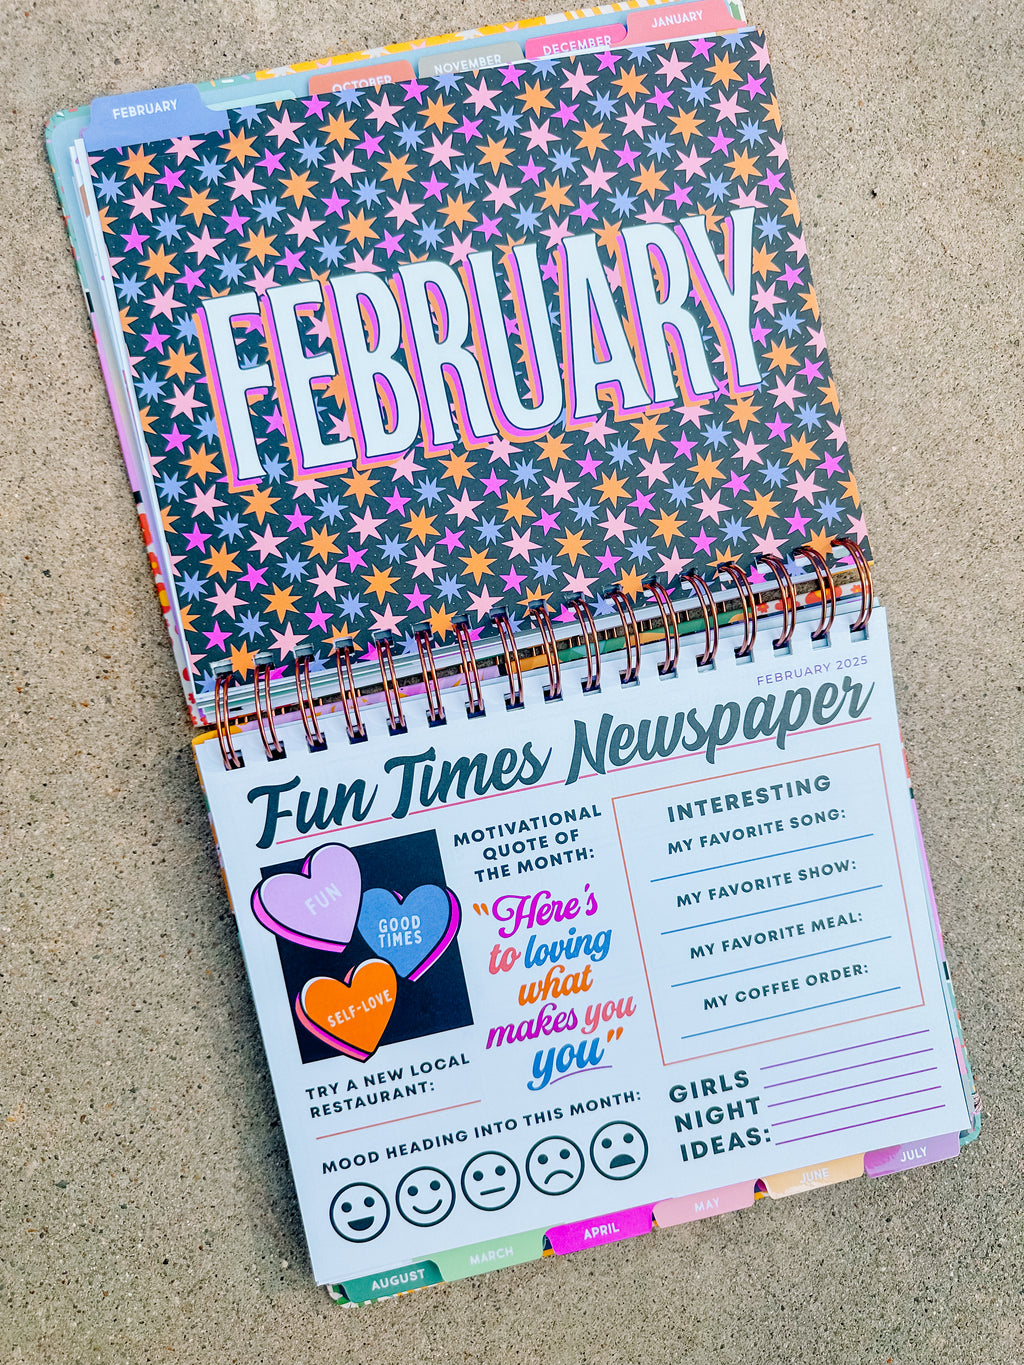 JANUARY
DECEMBER
NOVEMBER
OCTOBER
FEBRUARY
FEBRUARY
FEBRUARY 2025
Fun Times Newspaper
FUN
GOOD
TIMES
SELF-LOVE
MOTIVATIONAL
QUOTE OF
THE MONTH:
"Here's
to loving
what
makes you
you"
INTERESTING
MY FAVORITE SONG:
MY FAVORITE SHOW:
MY FAVORITE MEAL:
MY COFFEE ORDER:
TRY A NEW LOCAL
RESTAURANT:
MOOD HEADING INTO THIS MONTH:
GIRLS
NIGHT
IDEAS:
JULY
JUNE
MAY
APRIL
MARCH
AUGUST